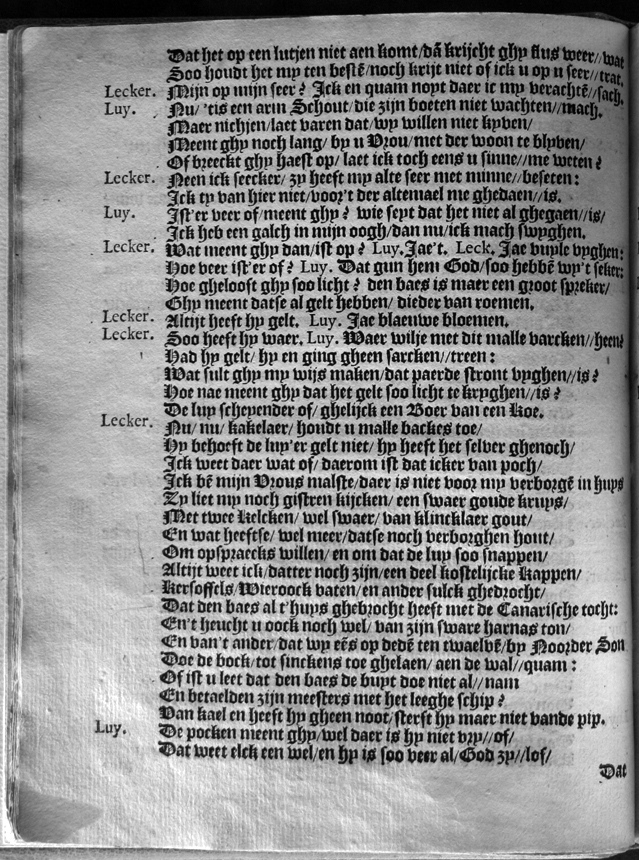 Dat het op een lutjen niet aen komt/dā krijcht ghy flus weer//wat
Soo houdt het my ten bestē/noch krijt niet of ick u op u seer//trat.
Lecker. Mijn op mijn seer? Ick en quam noyt daer ic my verachtē//sach.
Luy. Nu/ 'tis een arm Schout/die zijn boeten niet wachten//mach.
Maer nichjen/laet varen dat/wy willen niet kyven/
Meent ghy noch lang/ by u Vrou/met der woon te blyven/
Of breeckt ghy haest op/ laet ick toch eens u sinne//me weten?
Lecker. Neen ick seecker/ zy heeft my alte seer met minne//beseten:
Ick ty van hier niet/voor't der altemael me ghedaen//is.
Luy. Ist'er veer of/meent ghy? wie seyt dat het niet al ghegaen//is/
Ick heb een galch in mijn oogh/dan nu/ick mach swyghen.
Lecker. Wat meent ghy dan/ist op? Luy. Jae't. Leck. Jae vuyle vyghen:
Hoe veer ist'er of? Luy. Dat gun hem God/soo hebbē wy't seker:
Hoe gheloost ghy soo licht? den baes is maer een groot spreker/
Ghy meent datse al gelt hebben/ dieder van roemen.
Lecker. Altijt heeft hy gelt. Luy. Jae blaeuwe bloemen.
Lecker. Soo heeft hy waer. Luy. Waer wilje met dit malle varcken//heen?
Had hy gelt/ hy en ging gheen sarcken//treen:
Wat sult ghy my wijs maken/dat paerde stront vyghen//is?
Hoe nae meent ghy dat het gelt soo licht te kryghen//is?
De luy scheyender of/ ghelijck een Boer van een Koe.
Lecker. Nu/ nu/ kakelaer/ houdt u malle backes toe/
Hy behoeft de luy'er gelt niet/ hy heeft het selver ghenoch/
Ick weet daer wat of/ daerom ist dat icker van poch/
Ick bē mijn Vrous malste/daer is niet voor my verborgē in huys
Zy liet my noch gistren kijcken/ een swaer goude kruys/
Met twee Kelcken/ wel swaer/ van klincklaer gout/
En wat heeftse/ wel meer/datse noch verborghen hout/
Om opspraecks willen/ en om dat de luy soo snappen/
Altijt weet ick/datter noch zijn/een deel kostelijcke Kappen/
Kersoffels/Wieroock vaten/en ander sulck ghedrocht/
Dat den baes al t'huys ghebrocht heeft met de Canarische tocht:
En't heucht u oock noch wel/ van zijn sware harnas ton/
En van't ander/dat wy eēs op dedē ten twaelvē/by Noorder Son
Doe de bock/tot sinckens toe ghelaen/ aen de wal//quam:
Of ist u leet dat den baes de buyt doe niet al//nam
En betaelden zijn meesters met het leeghe schip?
Van kael en heeft hy gheen noot/sterft hy maer niet vande pip.
Luy. De pocken meent ghy/wel daer is hy niet vry//of/
Dat weet elck een wel/en hy is soo veer al/God zy//lof/
Dat